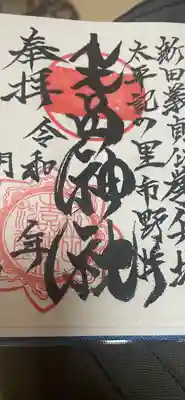 新田義貞公挙兵地
太平記の里市野井
生品神社
奉拝 令和 年
月